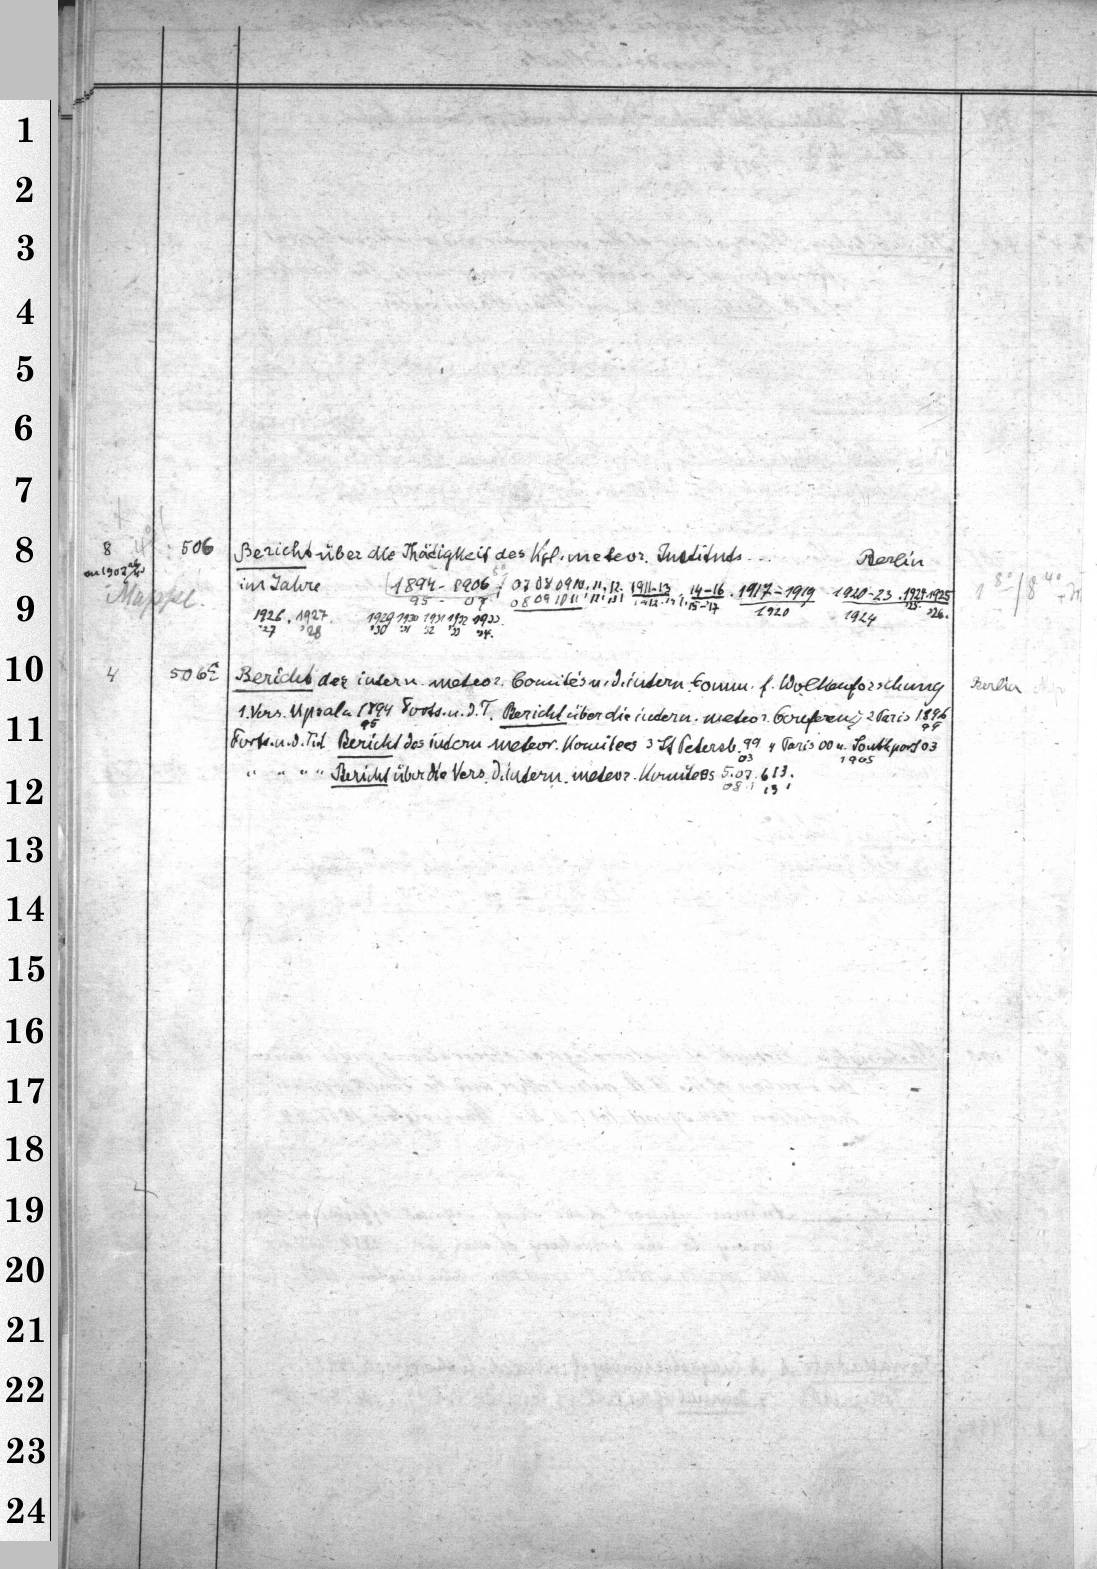 1
2
3
4
5
6
7
8
9
10
11
12
13
14
15
16
17
18
19
20
21
22
23
24
8 506 Bericht über die Thätigkeit des Kgl. meteor. Instituts ... Berlin
im Jahre 1894 - 1906 07 08 09 10 11 12 1911-13 14-16 1917-1919 1920-23 1924 1925
95 - 07 08 09 10 11 12 13 1920 1924 25 26
Mappe.
1926 1927 1929 1930 1931 1932 1933
'27 '28 '30 '31 '32 '33 '34
4 506 Bericht des intern. meteor. Comités u. d. intern. Comm. f. Wolkenforschung Berlin
1. Vers. Upsala 1894 Forts. u. d. T. Bericht über die intern. meteor. Conferenz 2 Paris 1896
95 99
Forts. u. d. Tit. Bericht des intern. meteor. Komitees 3 St Petersb. 99 4 Paris 00 u. Southport 03
03 1905
" " " " Bericht über die Vers. d. intern. meteor. Komitees 5. 07. 6 13.
08 13